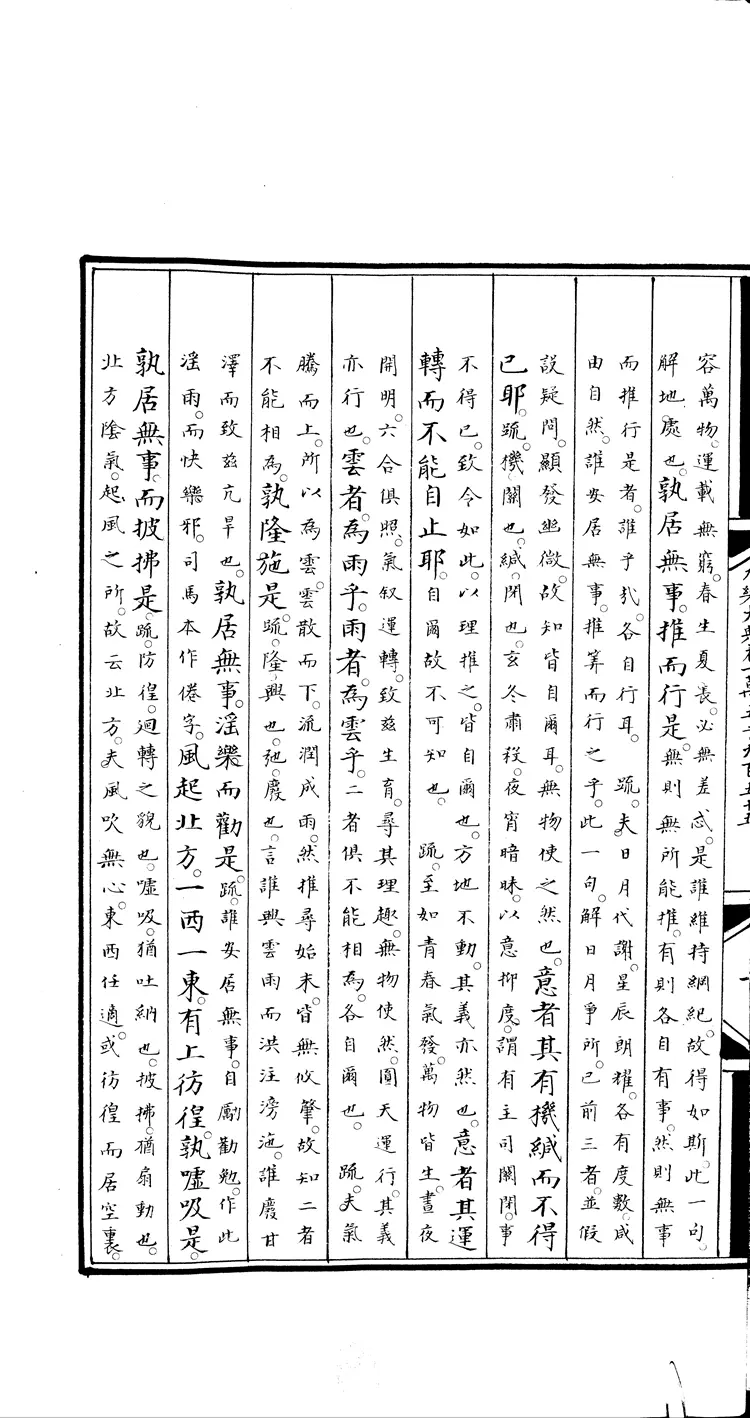 容萬物。運載無窮。春生夏長。必無差忒。是誰維持綱紀。故得如斯。此一句。
解地。處也。孰居無事。推而行是。無則無所能推。有則各自有事。然則無事
而推行是者。誰乎哉。各自行耳。 疏。夫日月代謝。星辰朗耀。各有度數。咸
由自然。誰安居無事。推筭而行之乎。此一句。解日月爭所。已前三者。並假
設疑問。顯發幽微。故知皆自爾耳。無物使之然也。意者其有機緘而不得
已耶。疏。機關也。緘。閉也。玄冬肅殺。夜宵暗昧。以意抑度。謂有主司關閉。事
不得已。致令如此。以理推之。皆自爾也。方地不動。其義亦然也。意者其運
轉而不能自止耶。自爾故不可知也。 疏。至如青春氣發。萬物皆生。晝夜
開明。六合俱照。氣叙運轉。致茲生育。尋其理趣。無物使然。圓天運行。其義
亦行也。雲者。為雨乎。雨者。為雲乎。二者俱不能相為。各自爾也。 疏。夫氣
騰而上。所以為雲。雲散而下。流潤成雨。然推尋始末。皆無攸肇。故知二者
不能相為。孰隆施是。疏。隆。興也。弛。廢也。言誰興雲雨而洪注滂沲。誰廢甘
澤而致茲亢旱也。孰居無事。淫樂而勸是。疏。誰安居無事。自勵勸勉。作此
淫雨。而快樂邪。司馬本作倦字。風起北方。一西一東。有上彷徨。孰噓吸是。
孰居無事。而披拂是。疏。防徨。迴轉之貌也。噓吸。猶吐納也。披拂。猶扇動也。
北方陰氣。起風之所。故云北方。夫風吹無心。東西任適。或彷徨而居空裏。